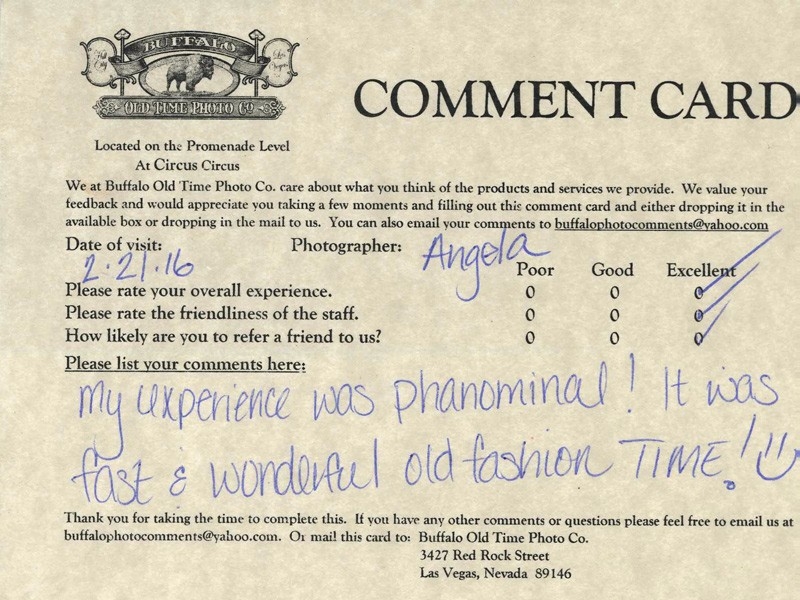 BUFFALO
OLD TIME PHOTO CO
COMMENT CARD
Located on the Promenade Level
At Circus Circus
We at Buffalo Old Time Photo Co. care about what you think of the products and services we provide. We value your
feedback and would appreciate you taking a few moments and filling out this comment card and either dropping it in the
available box or dropping in the mail to us. You can also email your comments to buffalophotocomments@yahoo.com
Date of visit: Photographer: Angela
2.21.16
Poor Good Excellent
Please rate your overall experience. 0 0 0
Please rate the friendliness of the staff. 0 0 0
How likely are you to refer a friend to us? 0 0 0
Please list your comments here:
my experience was phanominal! It was
fast & wonderful old fashion TIME!
Thank you for taking the time to complete this. If you have any other comments or questions please feel free to email us at
buffalophotocomments@yahoo.com. Or mail this card to: Buffalo Old Time Photo Co.
3427 Red Rock Street
Las Vegas, Nevada 89146